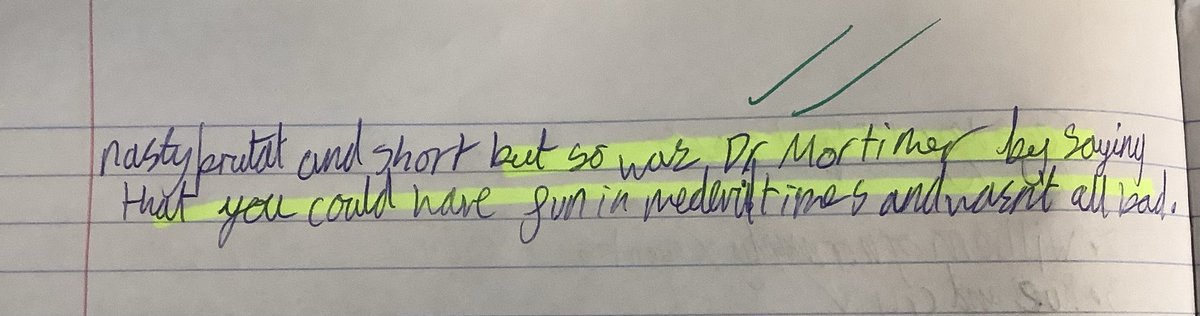 nasty brutal and short but so was Dr Mortimer by saying
that you could have fun in medevil times and wasn't all bad.